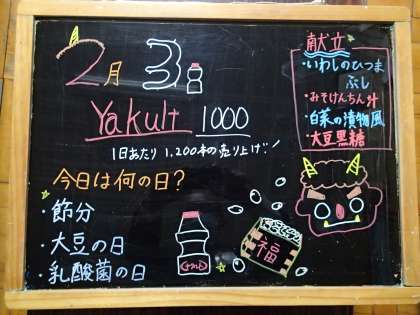 2月3日
Yakult 1000
1日あたり 1,200本の売り上げ!!
今日は何の日?
・節分
・大豆の日
・乳酸菌の日
献立
・いわしのひつま
ぶし
・みそけんちん汁
・白菜の漬物風
・大豆黒糖
福